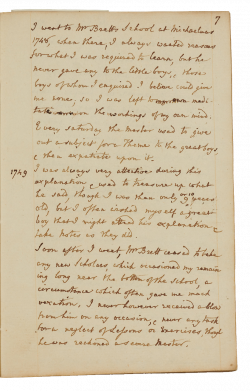 7
I went to Mr Bretts School at Michaelmas
1748, when there, I always wanted reasons
for what I was required to learn, but he
never gave any to the little boys, those
boys of whom I enquired I believe could give
me none, so I was left to my own medi-
tate on the workings of my own mind.
Every saturday the master used to give
out a subject for a Theme to the great boys
& then expatiate upon it.
1749 I was always very attentive during this
explanation, & used to treasure up what
he said though I was then only 9 years
old, but I often wished myself a great
boy that I might attend his explanation &
take notes as they did.
Soon after I went, Mr Brett ceased to take
any new Scholars, which occasioned my remain-
ing long near the bottom of the School, a
circumstance which often gave me much
vexation, I never however received a blow
from him on any occasion, never any task
for a neglect of Lessons or Exercises, though
he was reckoned a severe Master.